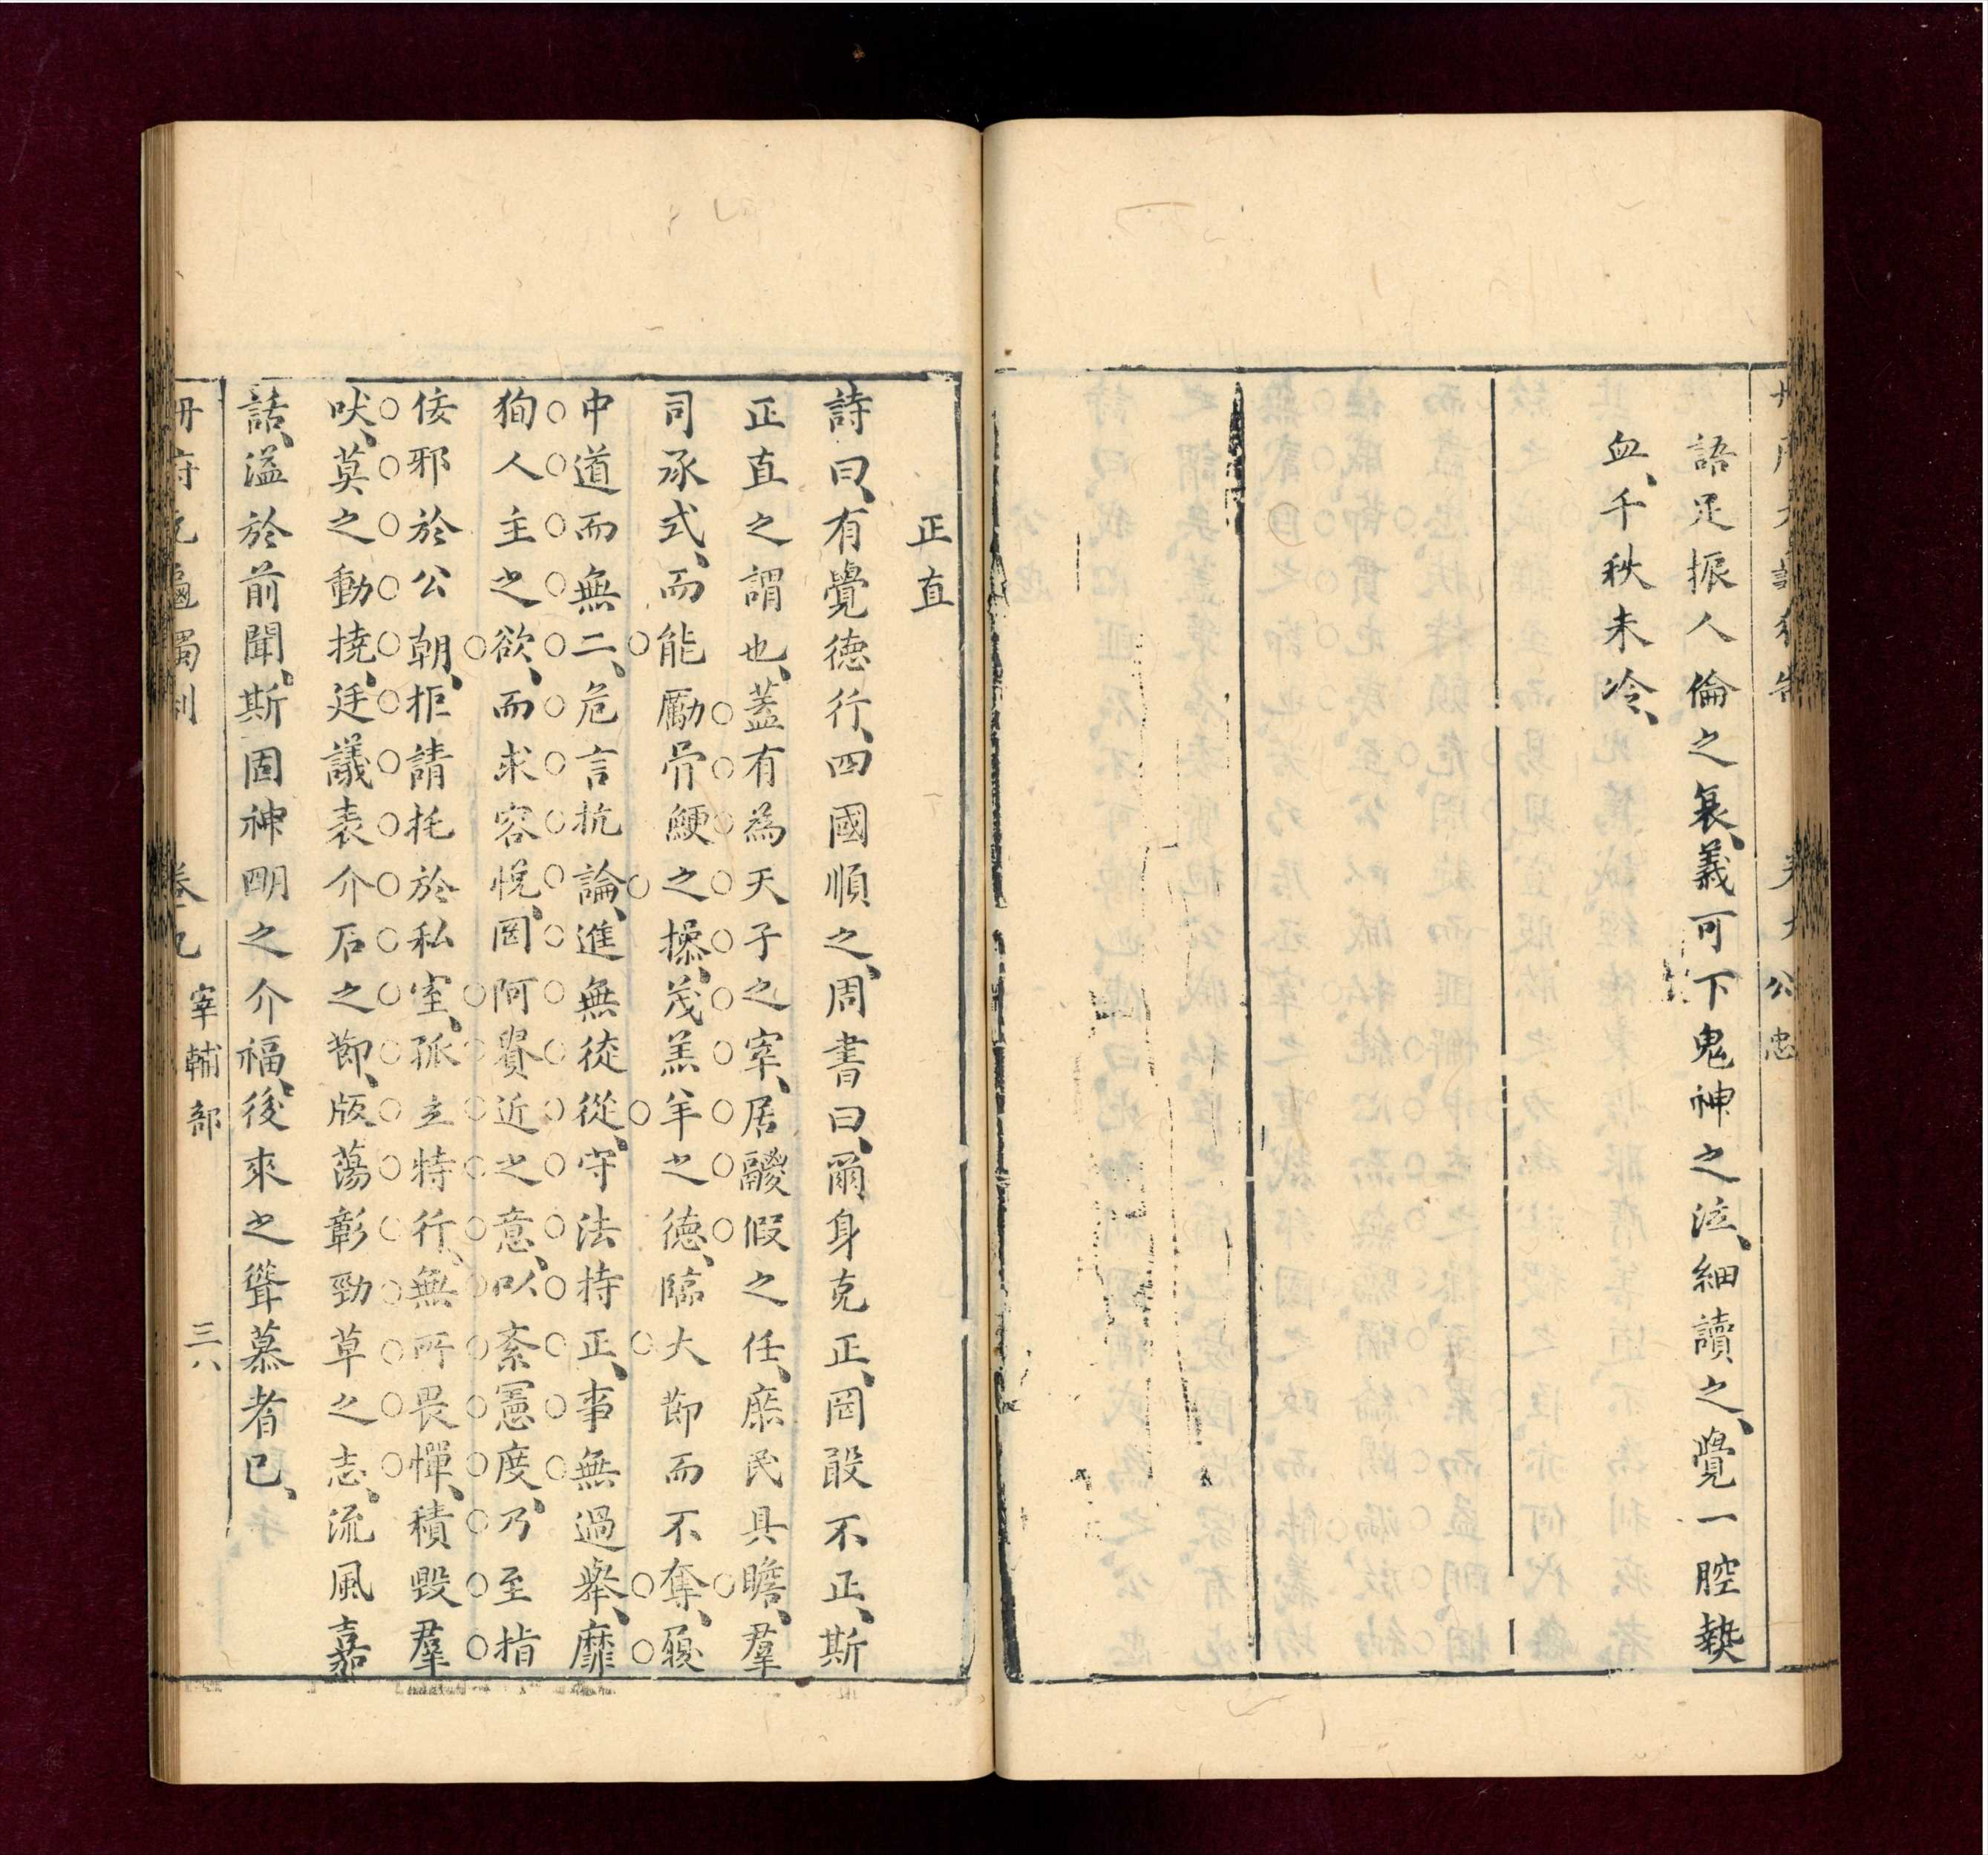 語足振人倫之衰、義可下鬼神之泣、細讀之、覺一腔熱
血、千秋未冷、
公忠
正直
詩曰、有覺德行、四國順之、周書曰、爾身克正、罔敢不正、斯
正直之謂也、蓋有為天子之宰、居鬷假之任、庶民具瞻、羣
司承式、而能勵骨鯁之操、茂羔羊之德、臨大節而不奪、履
中道而無二、危言抗論、進無徒從、守法持正、事無過舉、靡
狥人主之欲、而求容悅、罔阿貴近之意、以紊憲度、乃至指
佞邪於公朝、拒請托於私室、孤立特行、無所畏憚、積毀羣
吠、莫之動撓、廷議表介石之節、版蕩彰勁草之志、流風嘉
話、溢於前聞、斯固神明之介福、後來之聳慕者已、
冊府元龜獨制
卷九
宰輔部
三八